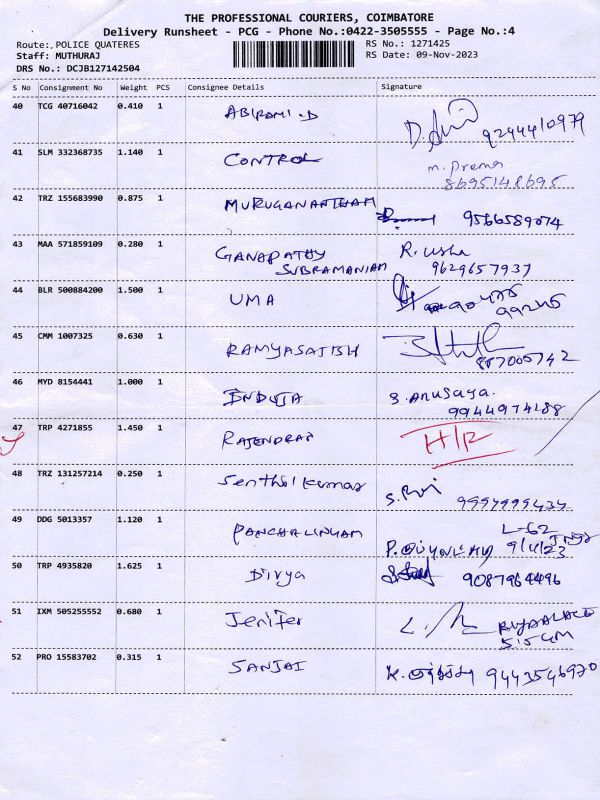 THE PROFESSIONAL COURIERS, COIMBATORE
Delivery Runsheet - PCG - Phone No.:0422-3505555 - Page No.:4
Route:,POLICE QUATERES
RS No.: 1271425
Staff: MUTHURAJ
RS Date: 09-Nov-2023
DRS No.: DCJB127142504
S No Consignment No Weight PCS Consignee Details Signature
40 TCG 40716042 0.410 1 ABIRAMI.D 9244410979
41 SLM 332368735 1.140 1 CONTROL m. Prema
8695148695
42 TRZ 155683990 0.875 1 MURUGANANTHAM 9566589074
43 MAA 571859109 0.280 1 GANAPATHY R. usha
SUBRAMANIAM 9629657937
44 BLR 500884200 1.500 1 UMA
45 CMM 1007325 0.630 1 RAMYASATBH
887005742
46 MYD 8154441 1.000 1 INDUJA S. Anusaya.
9944974188
47 TRP 4271855 1.450 1 RAJENDRAN
48 TRZ 131257214 0.250 1 Senthil kumar
49 DDG 5013357 1.120 1 PANCHALINGAM L-62
9/11/23
50 TRP 4935820 1.625 1 Divya 9087964496
51 IXM 505255552 0.680 1 Jenifer
52 PRO 15583702 0.315 1 SANJAI 9443546970